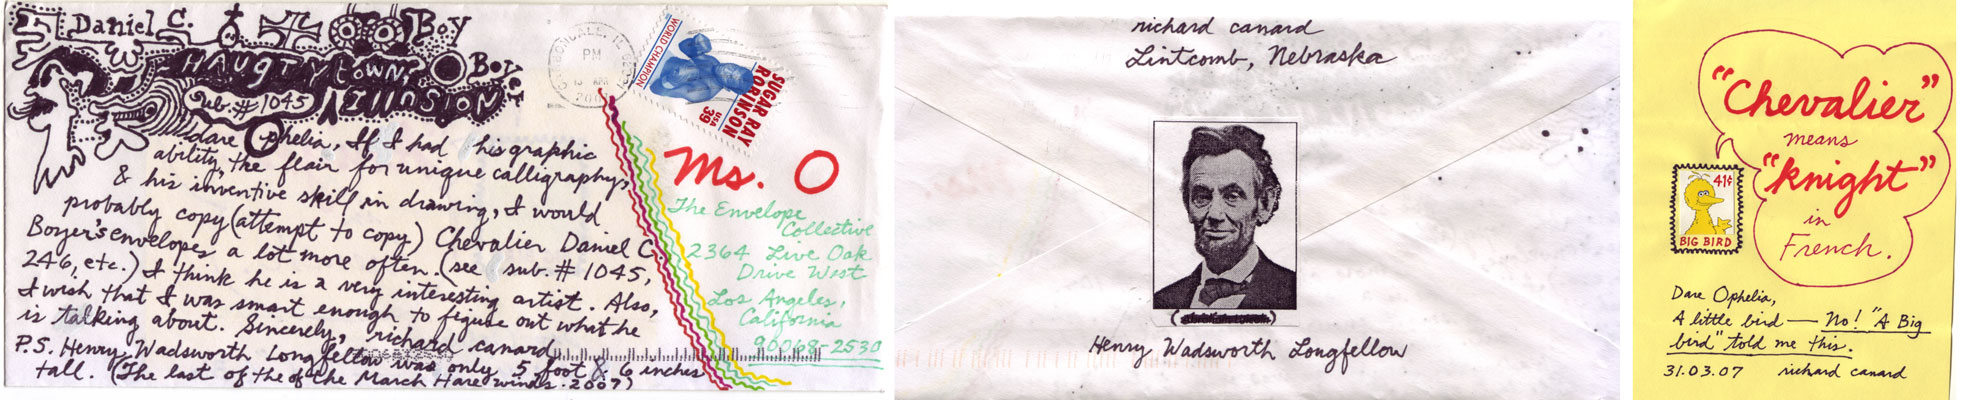 Daniel C. Boy
HAUGTY towns Boy
Sub. # 1045 Illusion
dare Ophelia, If I had his graphic
ability, the flair for unique calligraphy,
& his inventive skill in drawing, I would
probably copy (attempt to copy) Chevalier Daniel C.
Boyer's envelopes a lot more often. (see sub. # 1045,
246, etc.) I think he is a very interesting artist. Also,
I wish that I was smart enough to figure out what he
is talking about. Sincerely, richard canard
P.S. Henry Wadsworth Longfellow was only 5 foot & 6 inches
tall. (The last of the of the March Hare winds. 2007)
PM
APR
WORLD CHAMPION
SUGAR RAY
ROBINSON
USA
39
Ms. O
The Envelope
Collective
2364 Live Oak
Drive West
Los Angeles,
California
90068-2530
richard canard
Lintcomb, Nebraska
Henry Wadsworth Longfellow
"Chevalier"
means
"knight"
in
French.
41¢
BIG BIRD
Dare Ophelia,
A little bird — No! "A Big
bird" told me this.
31.03.07 richard canard